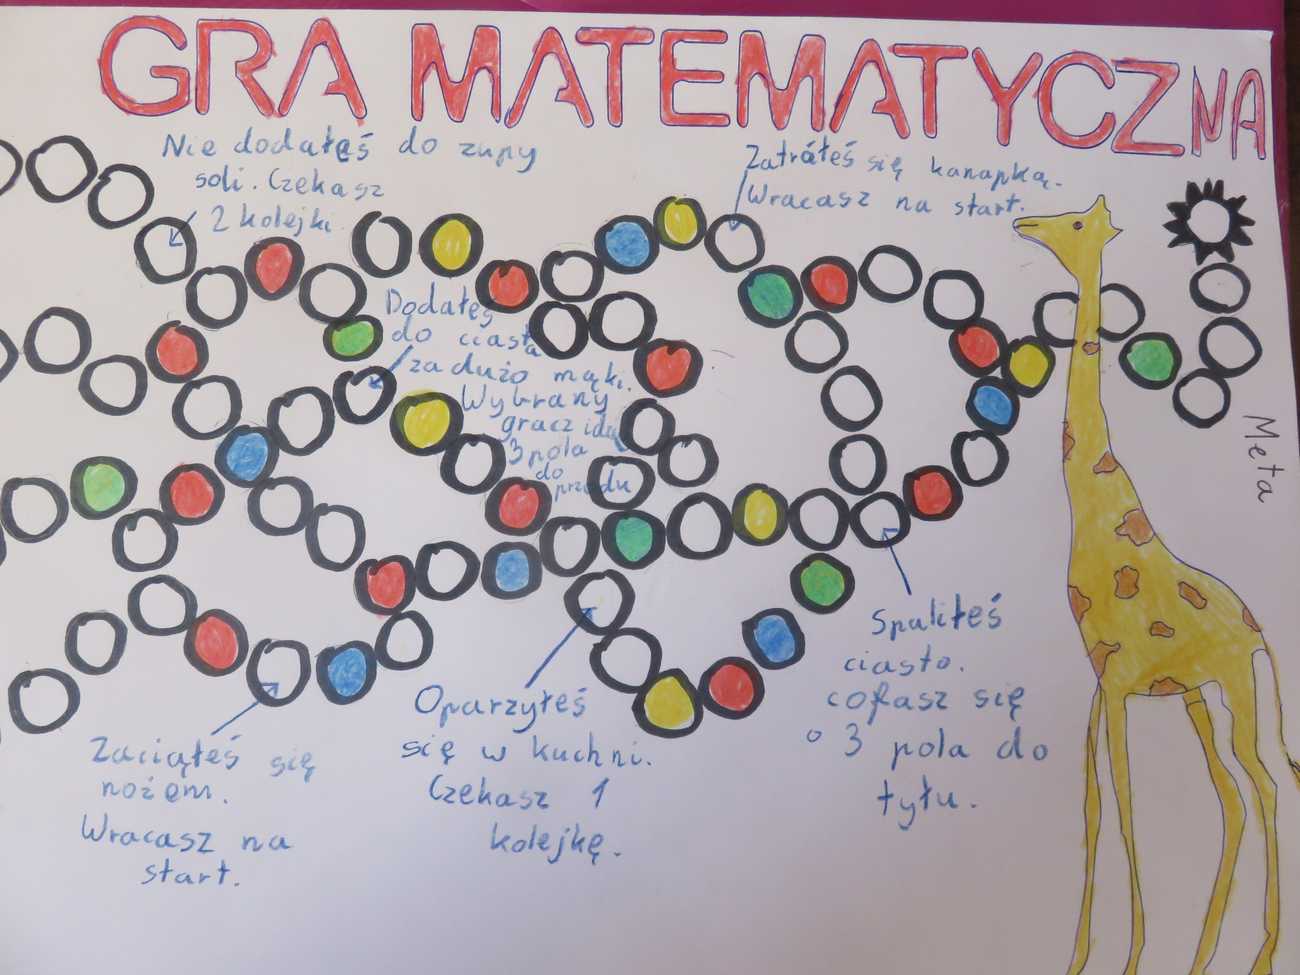 GRA MATEMATYCZNA
Nie dodałęś do zupy
soli. Czekasz
2 kolejki
Zatrółeś się kanapką.
Wracasz na start.
Dodałeś
do ciasta
za dużo mąki.
Wybrany
gracz idzie
3 pola
do
przodu
Meta
Spaliłeś
ciasto.
cofasz się
o 3 pola do
tyłu.
Oparzyłeś
się w kuchni.
Czekasz 1
kolejkę.
Zaciąłeś się
nożem.
Wracasz na
start.